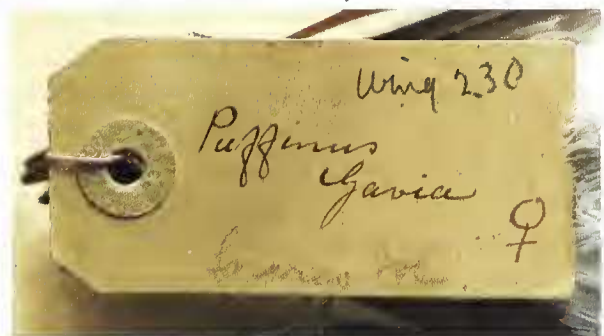 Wing 230
Puffinus
Gavia
♀